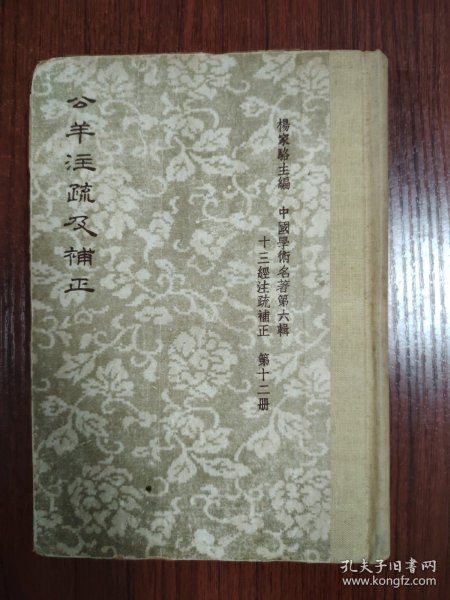 公羊注疏及補正
楊家駱主編　中國學術名著第六輯
十三經注疏補正　第十二册
孔夫子旧书网
www.kongfz.com